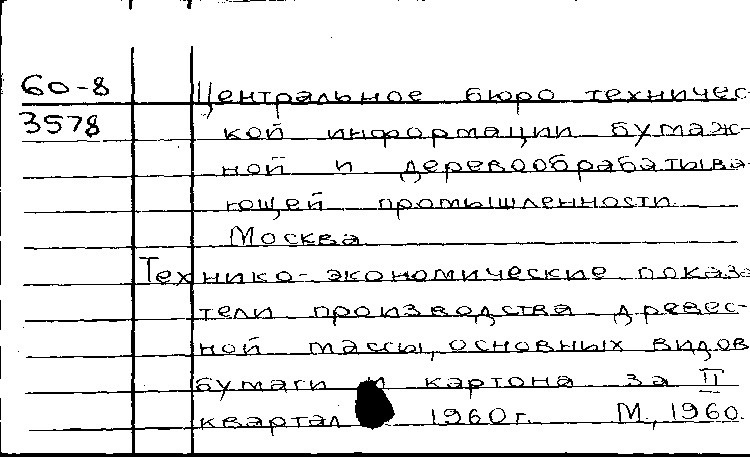 60-8
3578
Центральное бюро техничес-
кой информации бумаж-
ной и деревообрабатыва-
ющей промышленности.
Москва.
Технико-экономические показа-
тели производства древес-
ной массы, основных видов
бумаги и картона за II
квартал 1960г. М., 1960.